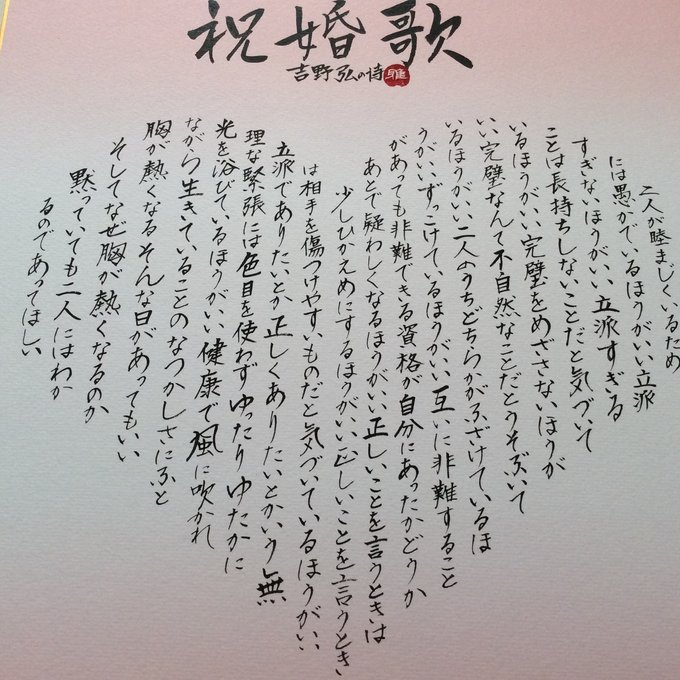 祝婚歌
吉野弘の詩 雅
二人が睦まじくいるため
には愚かでいるほうがいい立派
すぎないほうがいい立派すぎる
ことは長持ちしないことだと気づいて
いるほうがいい完璧をめざさないほうが
いい完璧なんて不自然なことだとうそぶいて
いるほうがいい二人のうちどちらかがふざけているほ
うがいいずっこけているほうがいい互いに非難すること
があっても非難できる資格が自分にあったかどうか
あとで疑わしくなるほうがいい正しいことを言うときは
少しひかえめにするほうがいい正しいことを言うとき
は相手を傷つけやすいものだと気づいているほうがいい
立派でありたいとか正しくありたいとかいう無
理な緊張には色目を使わずゆったりゆたかに
光を浴びているほうがいい健康で風に吹かれ
ながら生きていることのなつかしさにふと
胸が熱くなるそんな日があってもいい
そしてなぜ胸が熱くなるのか
黙っていても二人にはわか
るのであってほしい